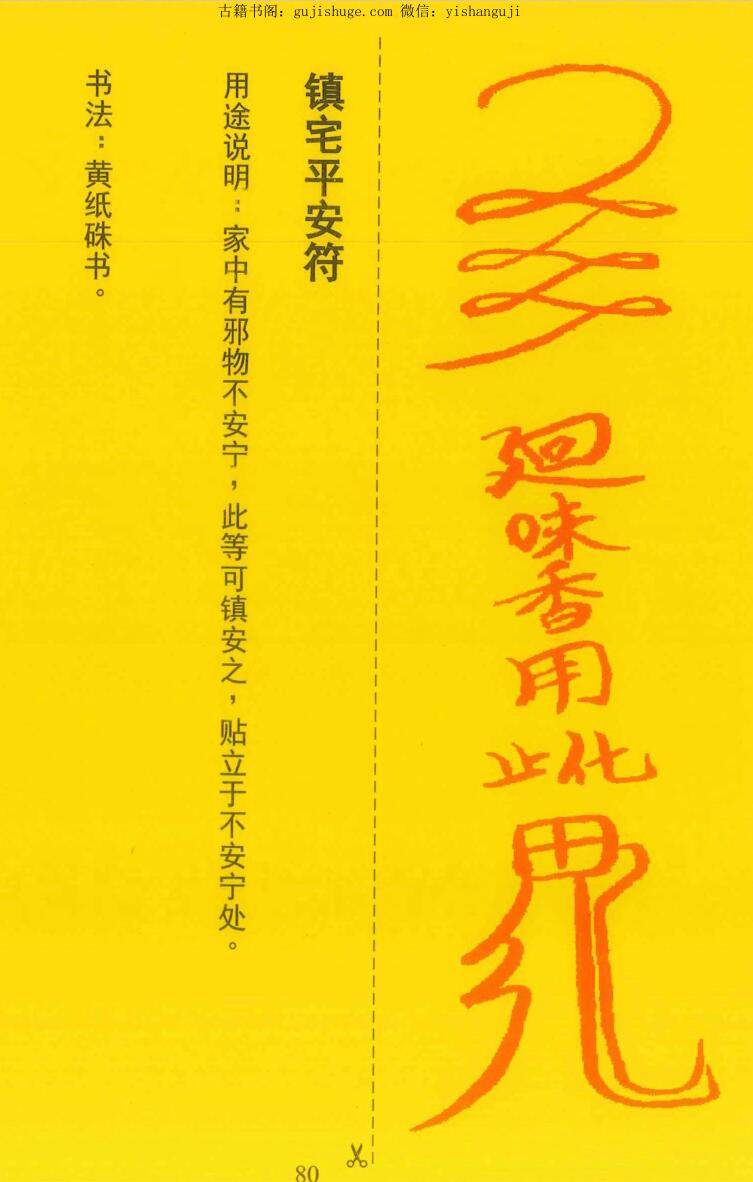 古籍书阁：gujishuge.com 微信：yishanguji
廻味香用止化
镇宅平安符
用途说明：家中有邪物不安宁，此等可镇安之，贴立于不安宁处。
书法：黄纸硃书。
80